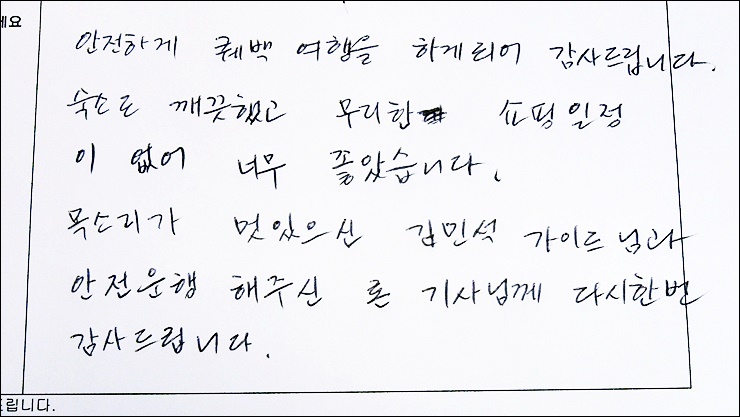 세요
안전하게 퀘백 여행을 하게되어 감사드립니다.
숙소도 깨끗했고 무리한 쇼핑일정
이 없어 너무 좋았습니다.
목소리가 멋있으신 김민석 가이드님과
안전운행 해주신 론 기사님께 다시한번
감사드립니다.
드립니다.